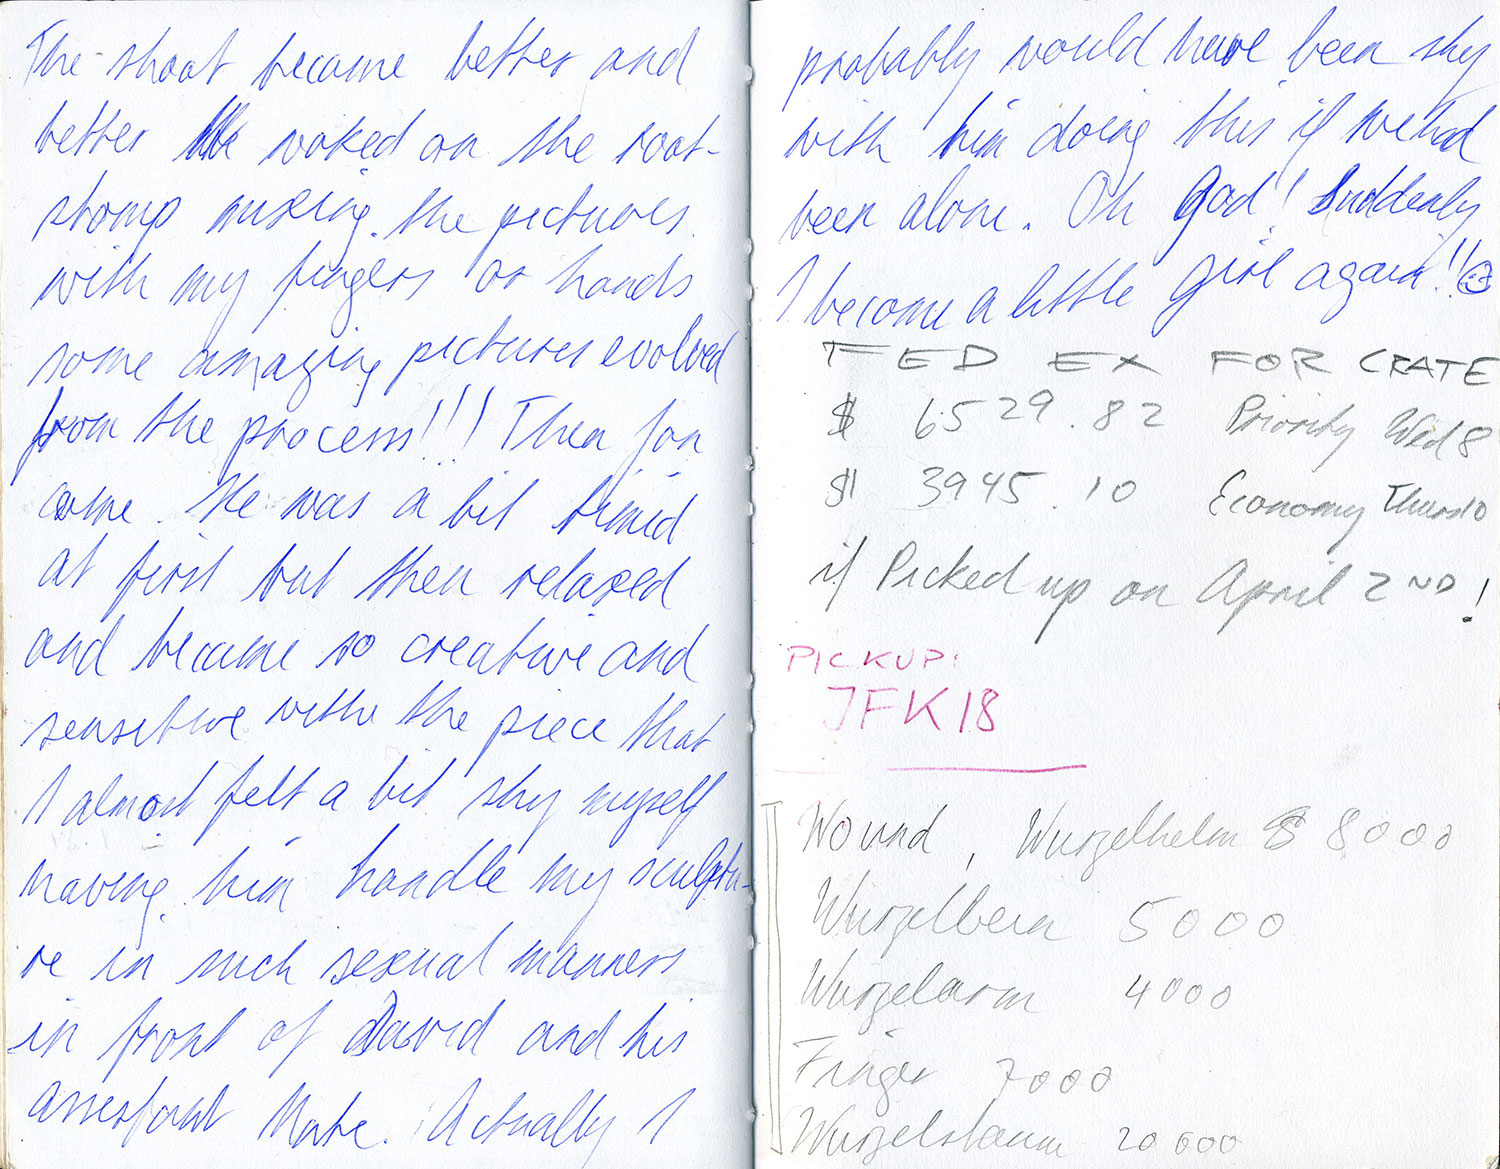 The shoot became better and
better We woked on the root-
stomp musing the pictures
with my fingers or hands
some amazing pictures evolved
from the process!!! Then Jon
came. He was a bit timid
at first but then relaxed
and became so creative and
sensitive withe the piece that
I almost felt a bit shy myself
having him handle my sculptu-
re in such sexual manners
in front of David and his
assestant Nate. Actually I
probably would have been shy
with him doing this if we had
been alone. Oh God! Suddenly
I become a little girl again!!
FED EX FOR CRATE
$ 6529.82 Priority Wed 8
$ 3945.10 Economy Thurs 10
if Picked up on April 2ND!
PICKUP:
JFK 18
Wound, Wurzelhelm $ 8000
Wurzelbein 5000
Wurzelarm 4000
Finger 7000
Wurzelstamm 20 000